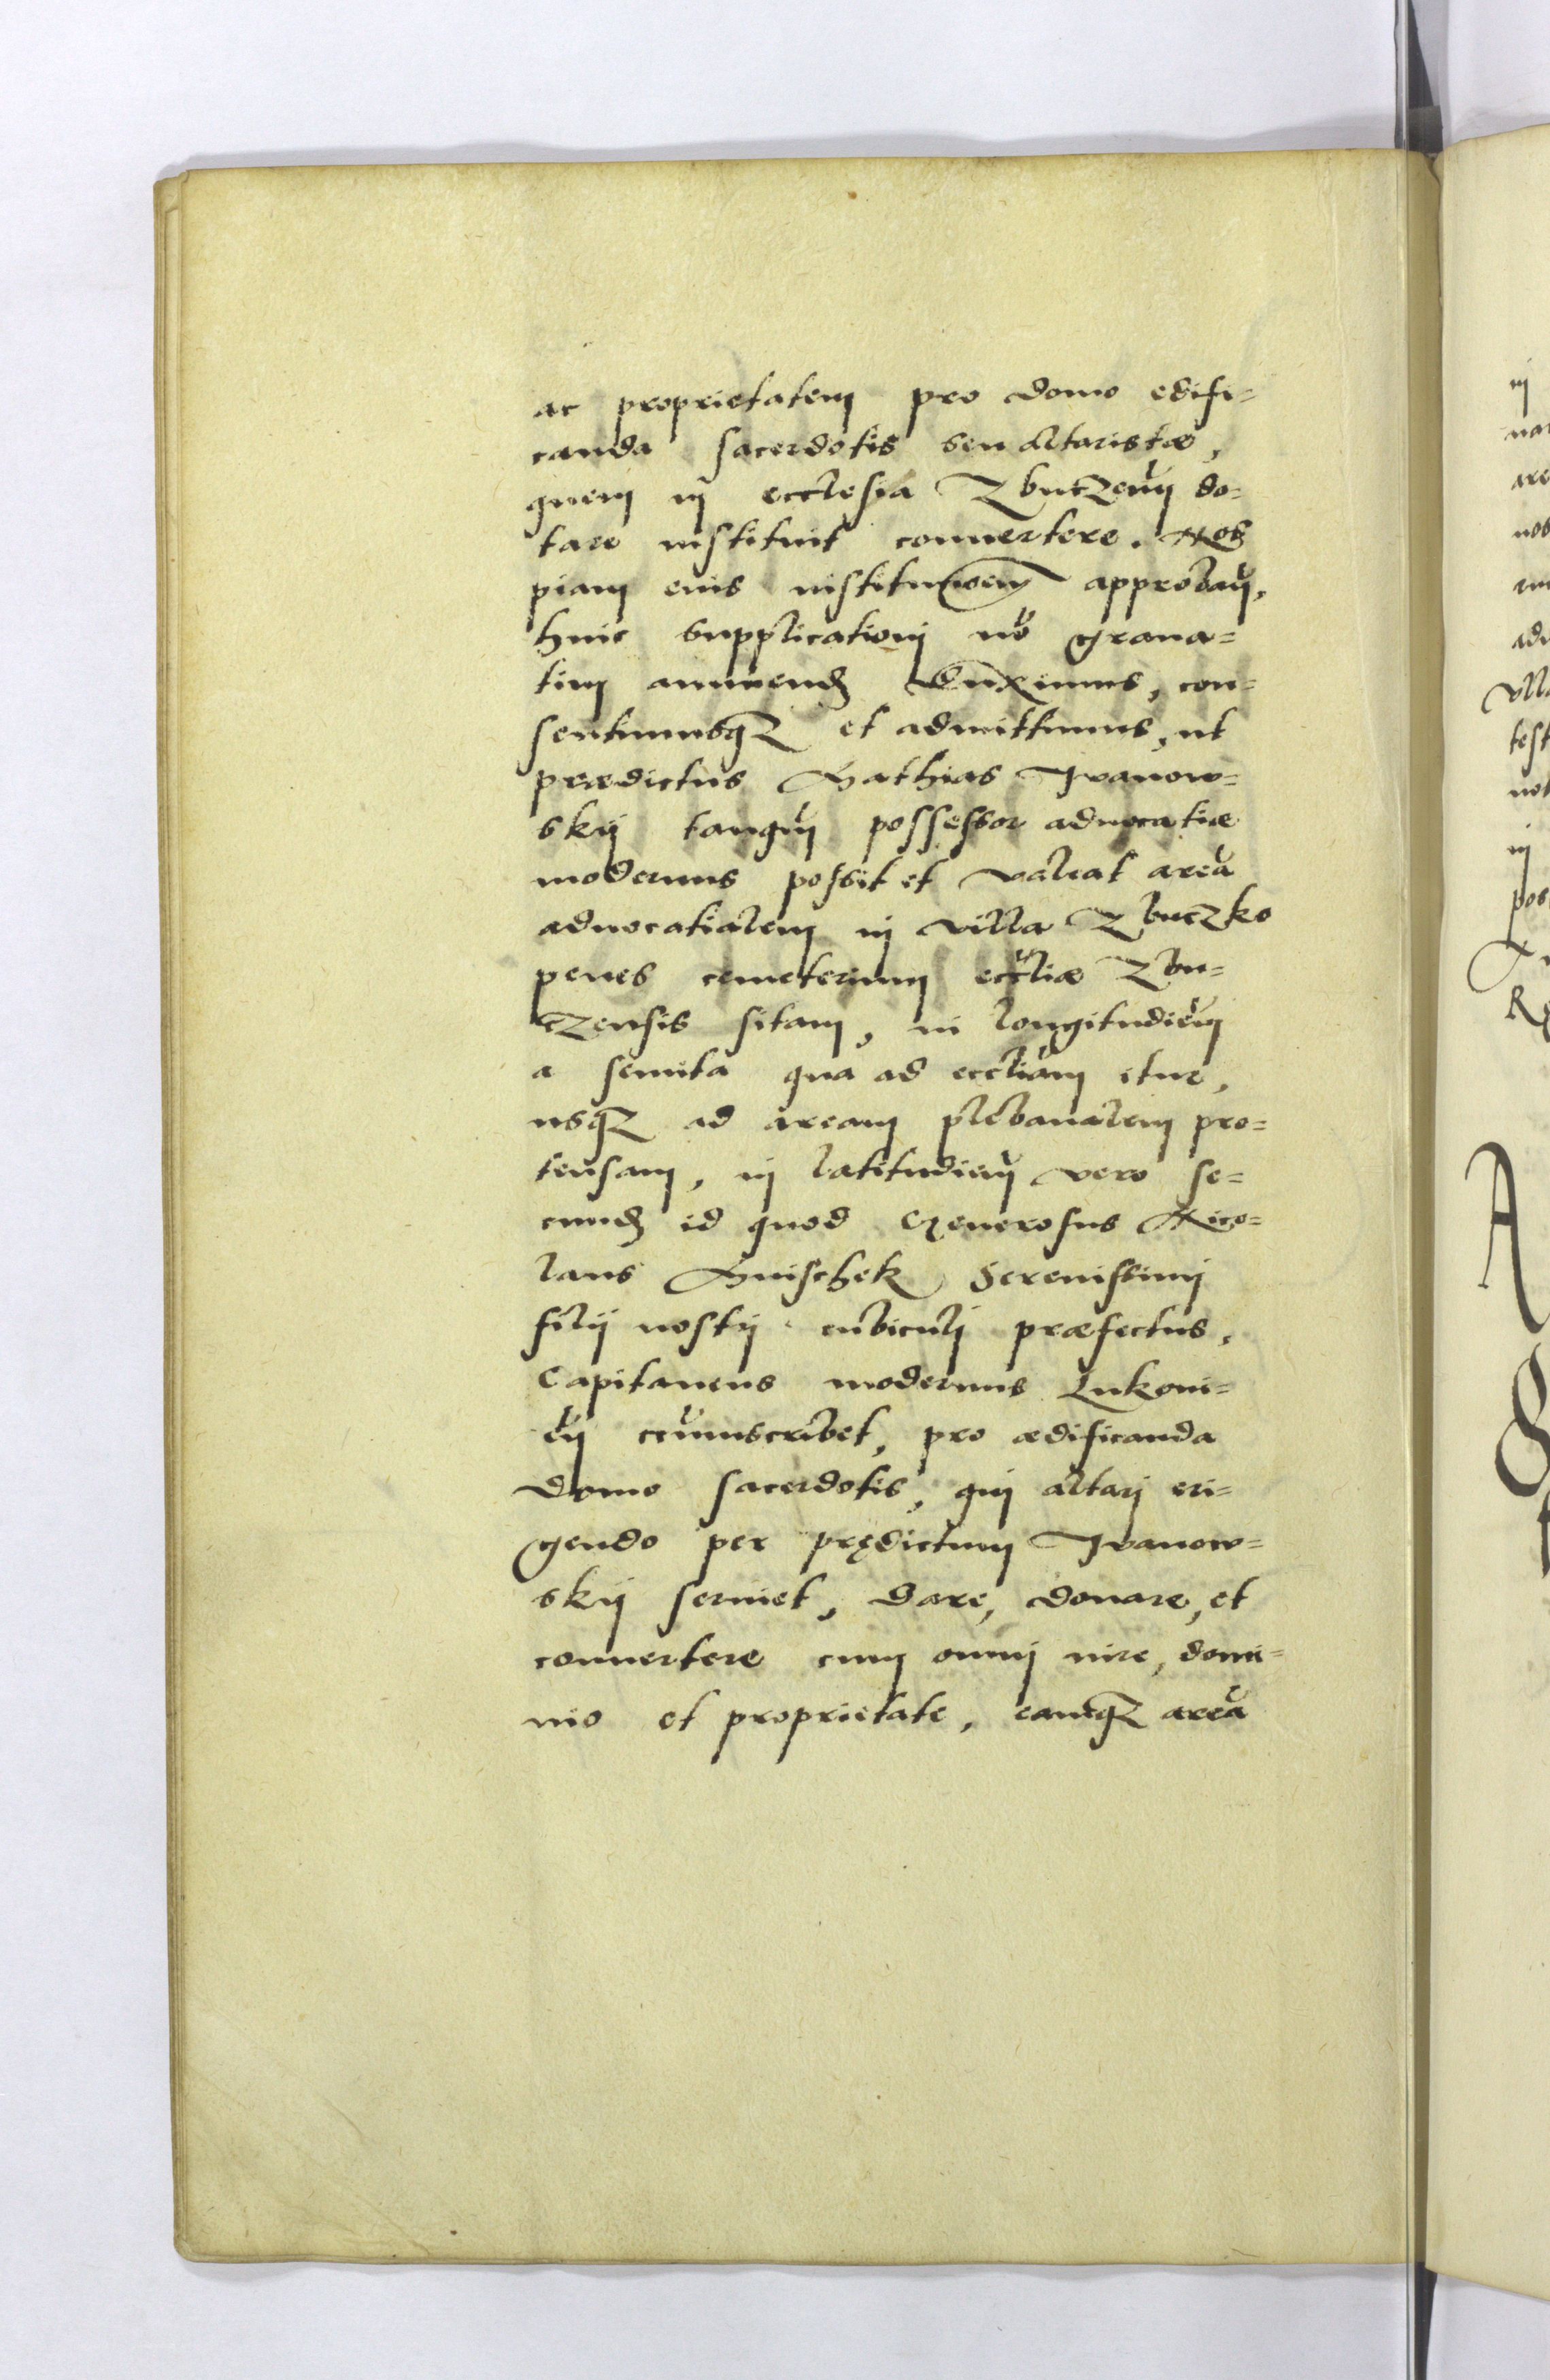 ac proprietatem pro domo edifi=
canda sacerdotis seu altaristæ,
quem in ecclesia Zbuczen̄ do=
tare instituit conuertere. Nos
piam eius institucoem approban̄,
huic supplicationi nō graua=
tim annuend duximus, con=
sentimusqz et admittimus, ut
prædictus Mathias Iwanow=
skij tanqū possessor aduocatiæ
modernus possit et valeat areā
aduocatialem in villa Zbuczko
penes cemeterium eccliæ Zbu=
czensis sitam, in longitudiem
a semita qua ad eccliam itur,
usqz ad aream plebanalem pro=
tensam, in latitudiem vero se=
cund id quod Generosus Nico=
laus Mnischek Serenissimi
filij nostrj cubiculj præfectus,
Capitaneus modernus Lukoui=
en̄ ccumscribet, pro ædificanda
domo sacerdotis, qui altarj eri=
gendo per prędictum Iwanow=
skij seruiet, dare, donare, et
conuertere cum omnj iure, domi=
nio et proprietate, eamqz areā